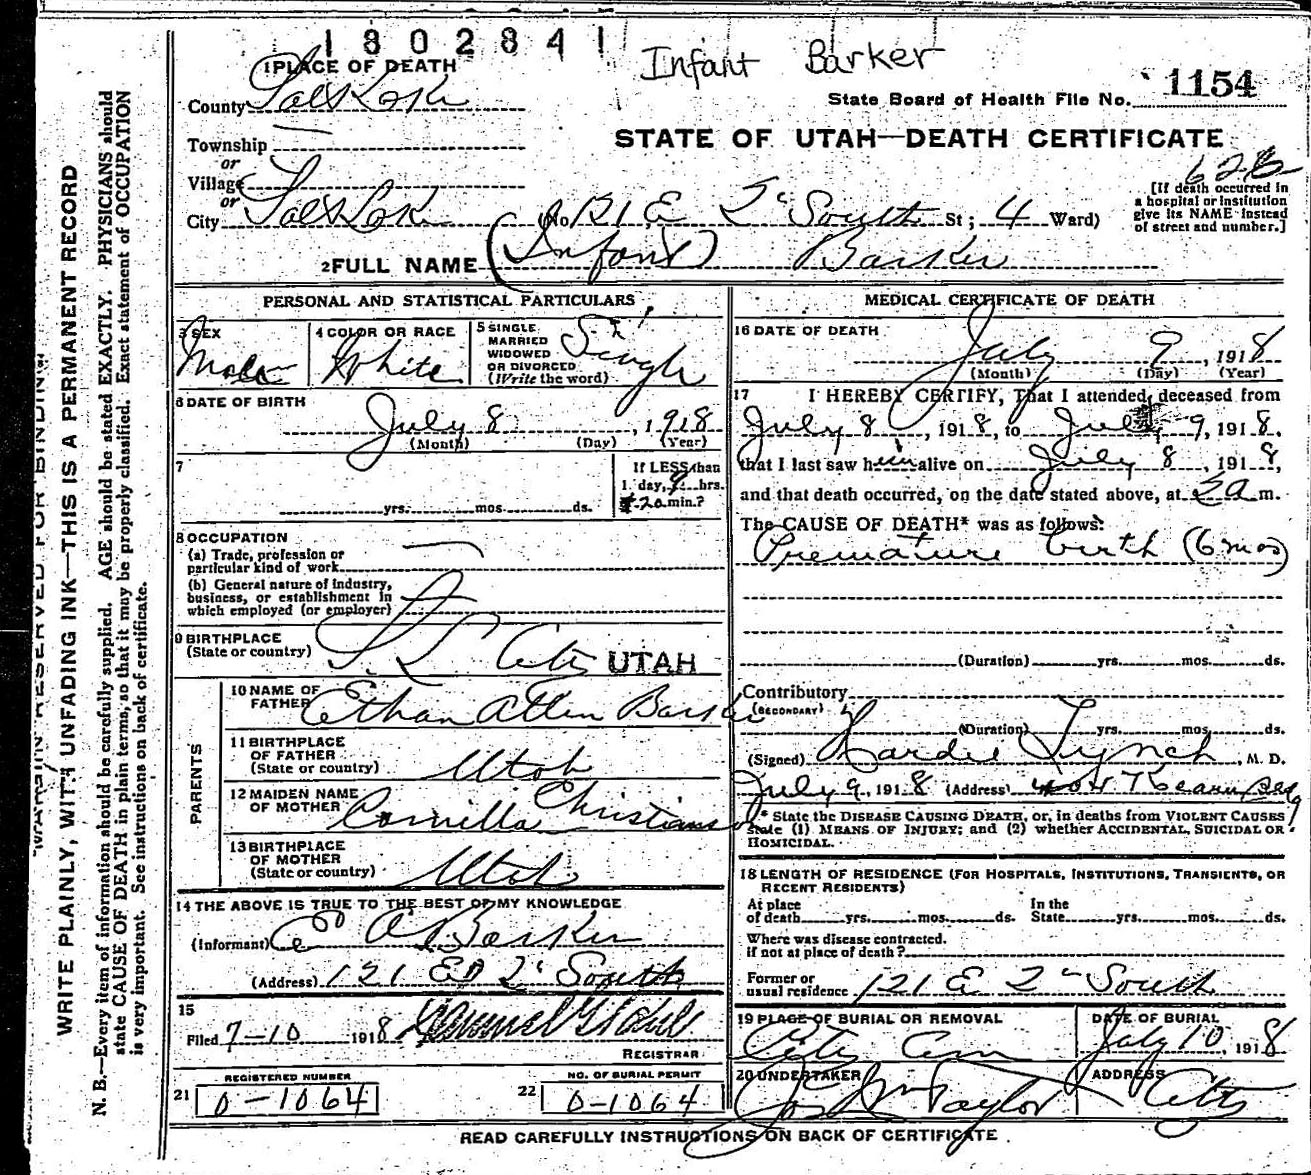 1802841
Infant Barker
1 PLACE OF DEATH
State Board of Health File No. 1154
County Salt Lake
STATE OF UTAH—DEATH CERTIFICATE
Township —
or
Village
or
City Salt Lake (No. 121 E 2" South St; 4 Ward)
[If death occurred in
a hospital or institution
give its NAME instead
of street and number.]
2 FULL NAME (Infant) Barker
PERSONAL AND STATISTICAL PARTICULARS
3 SEX
Male
4 COLOR OR RACE
White
5 SINGLE
MARRIED
WIDOWED
OR DIVORCED
(Write the word)
Single
6 DATE OF BIRTH
July 8, 1918
(Month) (Day) (Year)
7
yrs. mos. ds.
If LESS than
1 day, 9 hrs.
20 min.?
8 OCCUPATION
(a) Trade, profession or
particular kind of work
(b) General nature of industry,
business, or establishment in
which employed (or employer)
9 BIRTHPLACE
(State or country) S L City UTAH
PARENTS
10 NAME OF
FATHER Ethan Allen Barker
11 BIRTHPLACE
OF FATHER
(State or country) Utah
12 MAIDEN NAME
OF MOTHER Cornilla Christianson
13 BIRTHPLACE
OF MOTHER
(State or country) Utah
14 THE ABOVE IS TRUE TO THE BEST OF MY KNOWLEDGE
(Informant) E A Barker
(Address) 121 E 2" South
15
Filed 7-10 1918
REGISTRAR
21 REGISTERED NUMBER
0-1064
22 NO. OF BURIAL PERMIT
0-1064
MEDICAL CERTIFICATE OF DEATH
16 DATE OF DEATH
July 9, 1918
(Month) (Day) (Year)
17 I HEREBY CERTIFY, That I attended deceased from
July 8, 1918, to July 9, 1918,
that I last saw him alive on July 8, 1918,
and that death occurred, on the date stated above, at m.
The CAUSE OF DEATH* was as follows:
Premature birth (6 mos)
(Duration) yrs. mos. ds.
Contributory
(SECONDARY)
(Duration) yrs. mos. ds.
(Signed) Hardie Lynch, M. D.
July 9, 1918 (Address) Kearns Bldg
* State the DISEASE CAUSING DEATH, or, in deaths from VIOLENT CAUSES
state (1) MEANS OF INJURY; and (2) whether ACCIDENTAL, SUICIDAL OR
HOMICIDAL.
18 LENGTH OF RESIDENCE (FOR HOSPITALS, INSTITUTIONS, TRANSIENTS, OR
RECENT RESIDENTS)
At place
of death yrs. mos. ds.
In the
State yrs. mos. ds.
Where was disease contracted.
if not at place of death?
Former or
usual residence 121 E 2" South
19 PLACE OF BURIAL OR REMOVAL
City Cem
DATE OF BURIAL
July 10, 1918
20 UNDERTAKER
Jos Wm Taylor
ADDRESS
City
READ CAREFULLY INSTRUCTIONS ON BACK OF CERTIFICATE
MARGIN RESERVED FOR BINDING
WRITE PLAINLY, WITH UNFADING INK—THIS IS A PERMANENT RECORD
N. B.—Every item of information should be carefully supplied. AGE should be stated EXACTLY. PHYSICIANS should
state CAUSE OF DEATH in plain terms, so that it may be properly classified. Exact statement of OCCUPATION
is very important. See instructions on back of certificate.